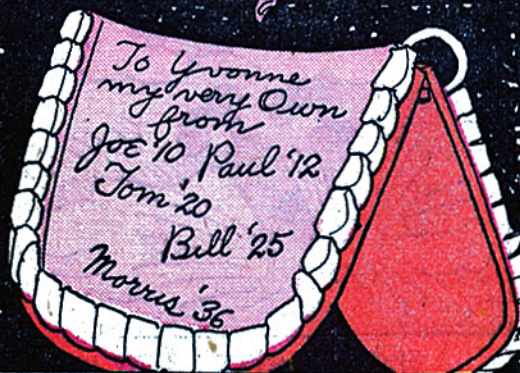 To Yvonne
my very Own
from
Joe '10 Paul '12
Tom '20
Bill '25
Morris '36